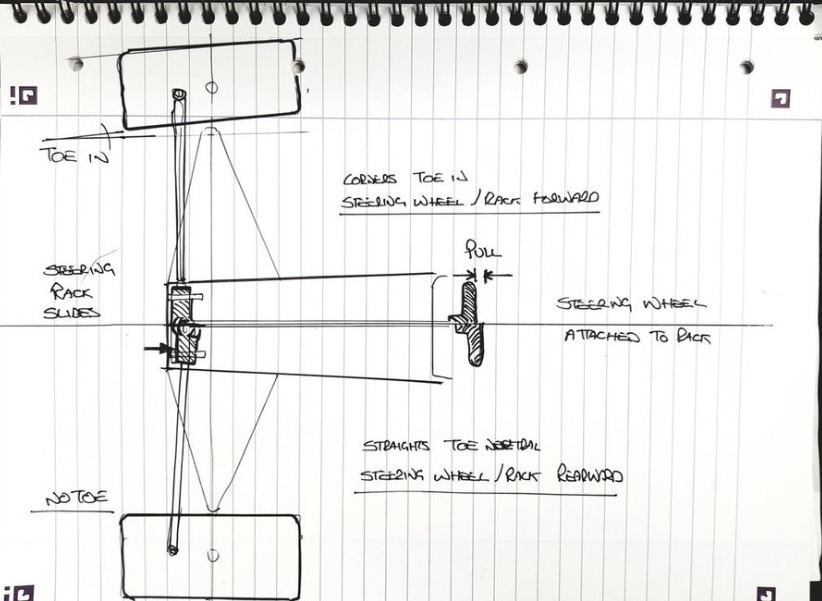 TOE IN
CORNERS TOE IN
STEERING WHEEL / RACK FORWARD
PULL
STEERING
RACK
SLIDES
STEERING WHEEL
ATTACHED TO RACK
STRAIGHTS TOE NEUTRAL
STEERING WHEEL / RACK REARWARD
NO TOE